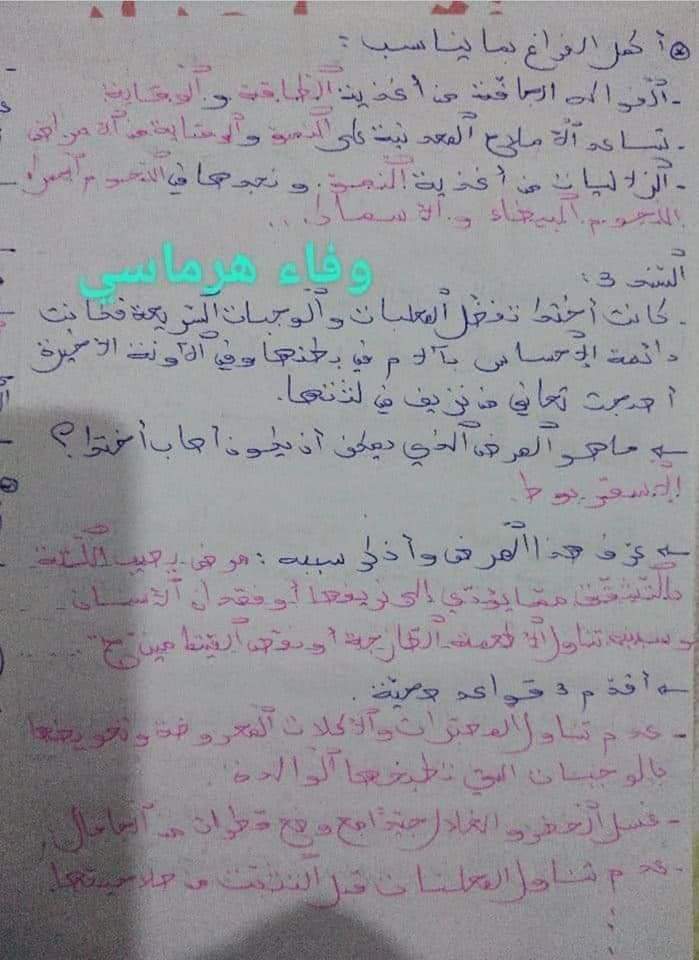 أكمل الفراغ بما يناسب :
- الفواكه الجافة من أغذية الطاقة والوقاية
- تساعد الأملاح المعدنية على النمو والوقاية من الأمراض
- الزلاليات من أغذية النمو . ونجدها في اللحوم الحمراء
اللحوم البيضاء والأسماك...
وفاء هرماسي
السند 3 :
. كانت أختك تفضل المعلبات والوجبات السريعة فكانت
دائمة الإحساس بآلام في بطنها وفي الآونة الأخيرة
أصبحت تعاني من نزيف في لثتها.
ماهو المرض الذي يمكن أن يكون أصاب أختك ؟
الإسقربوط.
عرف هذا المرض وأذكر سببه : مرض يصيب اللثة
بالتشقق مما يؤدي إلى نزيفها أو فقدان الأسنان
وسببه تناول الأطعمة الطازجة أو نقص الفيتامين ج
أقدم 3 قواعد صحية .
- عدم تناول المعجنات والأكلات المعروضة وتعويضها
بالوجبات التي تطبخها الوالدة
- غسل الخضر والغلال جيدا مع وضع قطرات من الجافال
- عدم تناول المعلبات قبل التثبت من صلاحيتها.